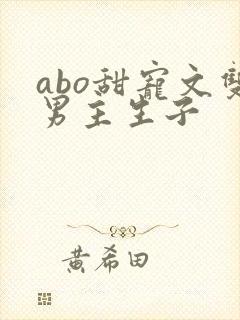 abo甜寵文雙
男主生子
黄希田